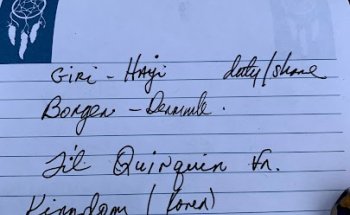 Giri - Haji duty/shame
Borgen - Denmark.
Lil Quinquin Fr.
Kingdom (Korea)